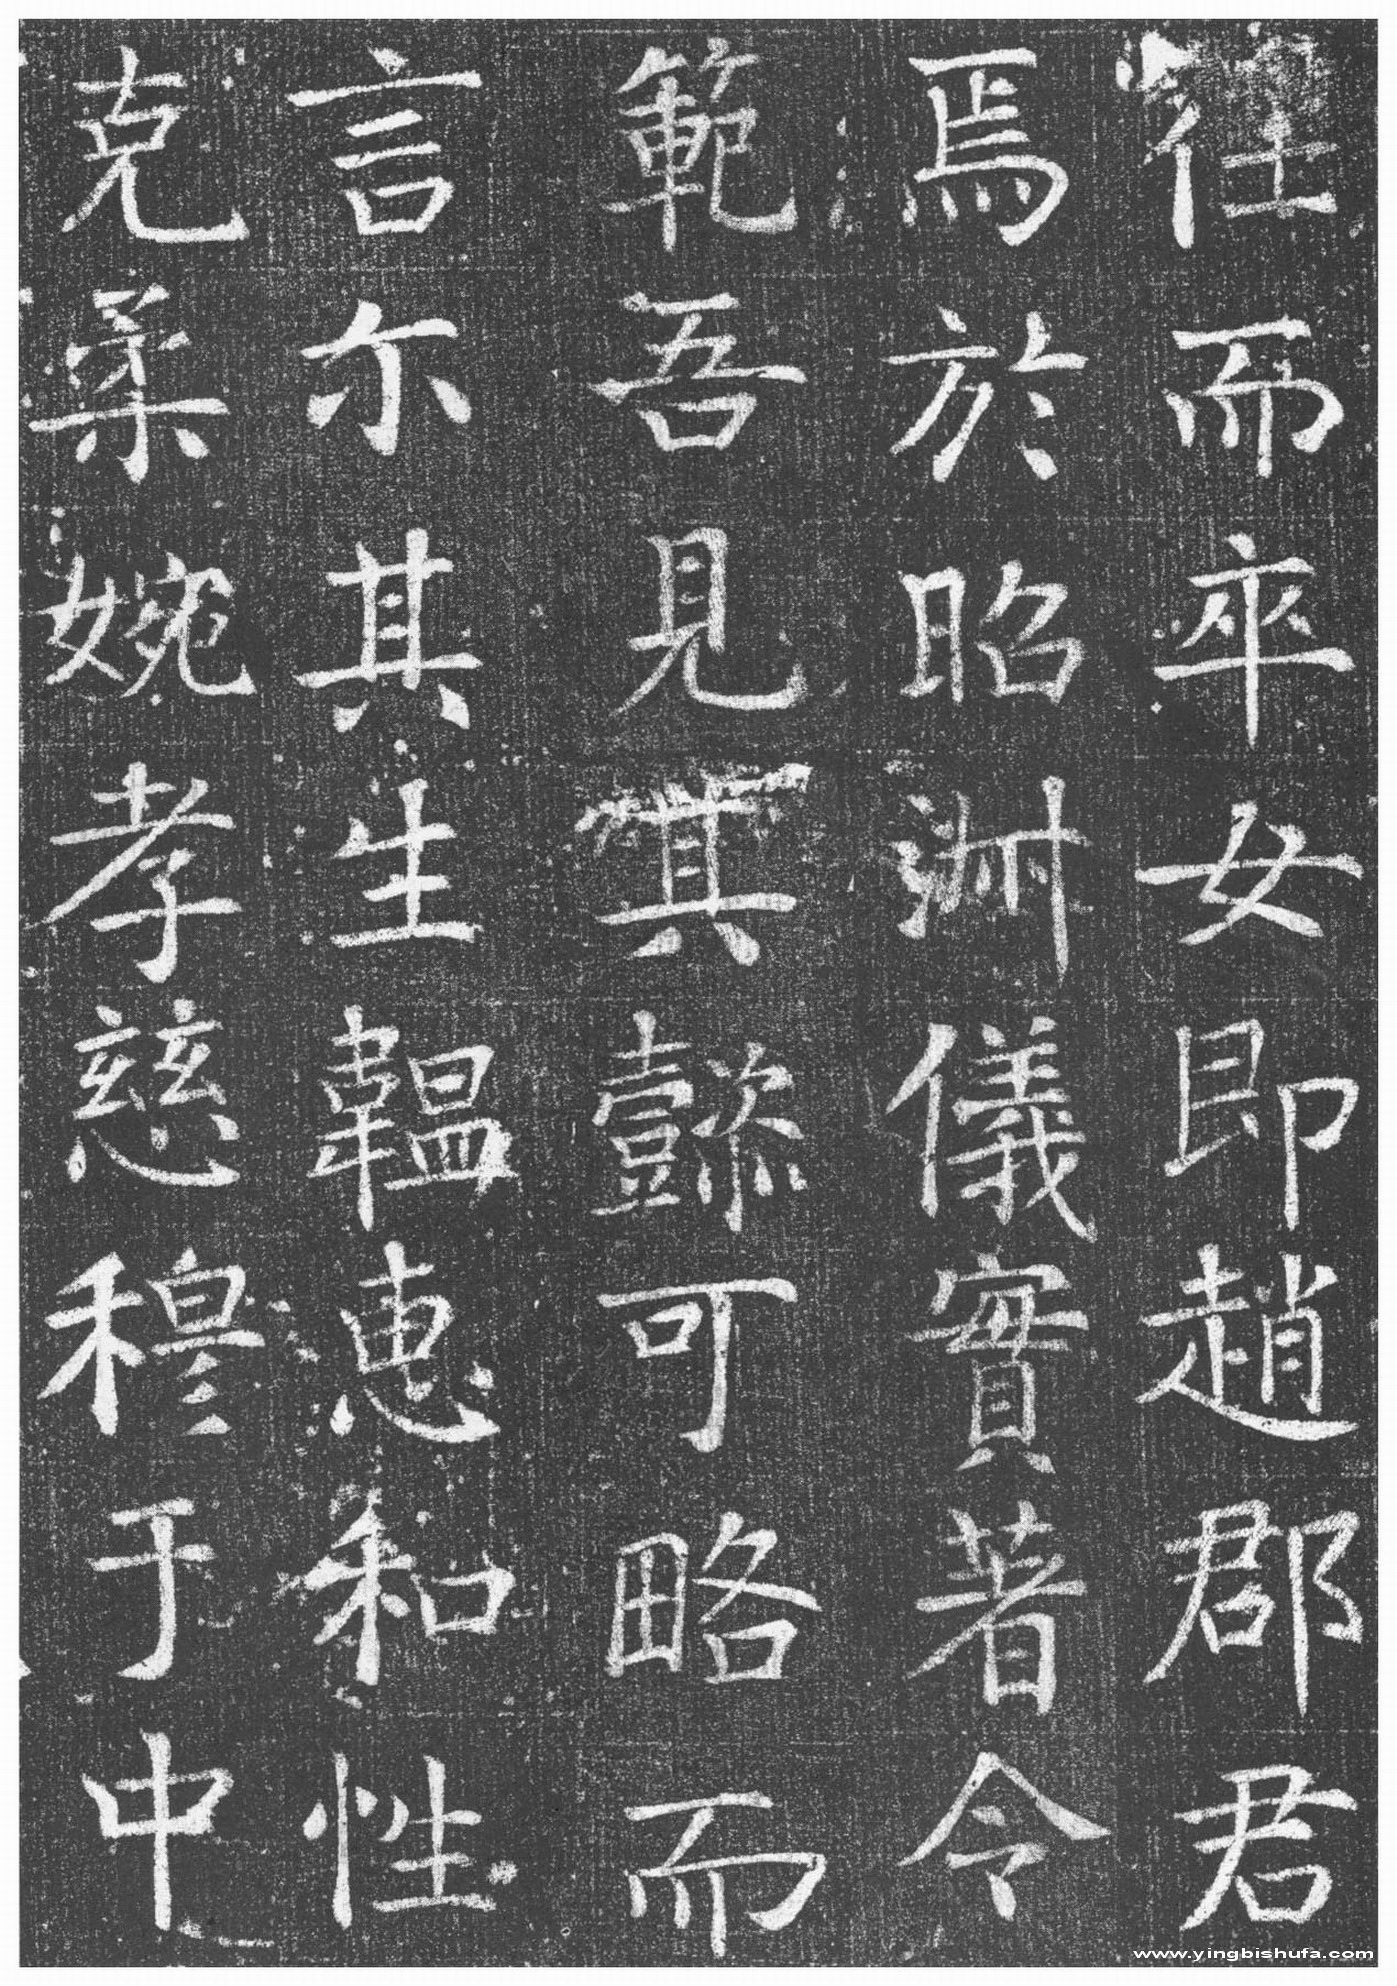 任而卒女即趙郡君
焉於昭淋儀實著令
範吾見其懿可略而
言尒其生韞惠和性
克柔婉孝慈穆于中
www.yingbishufa.com